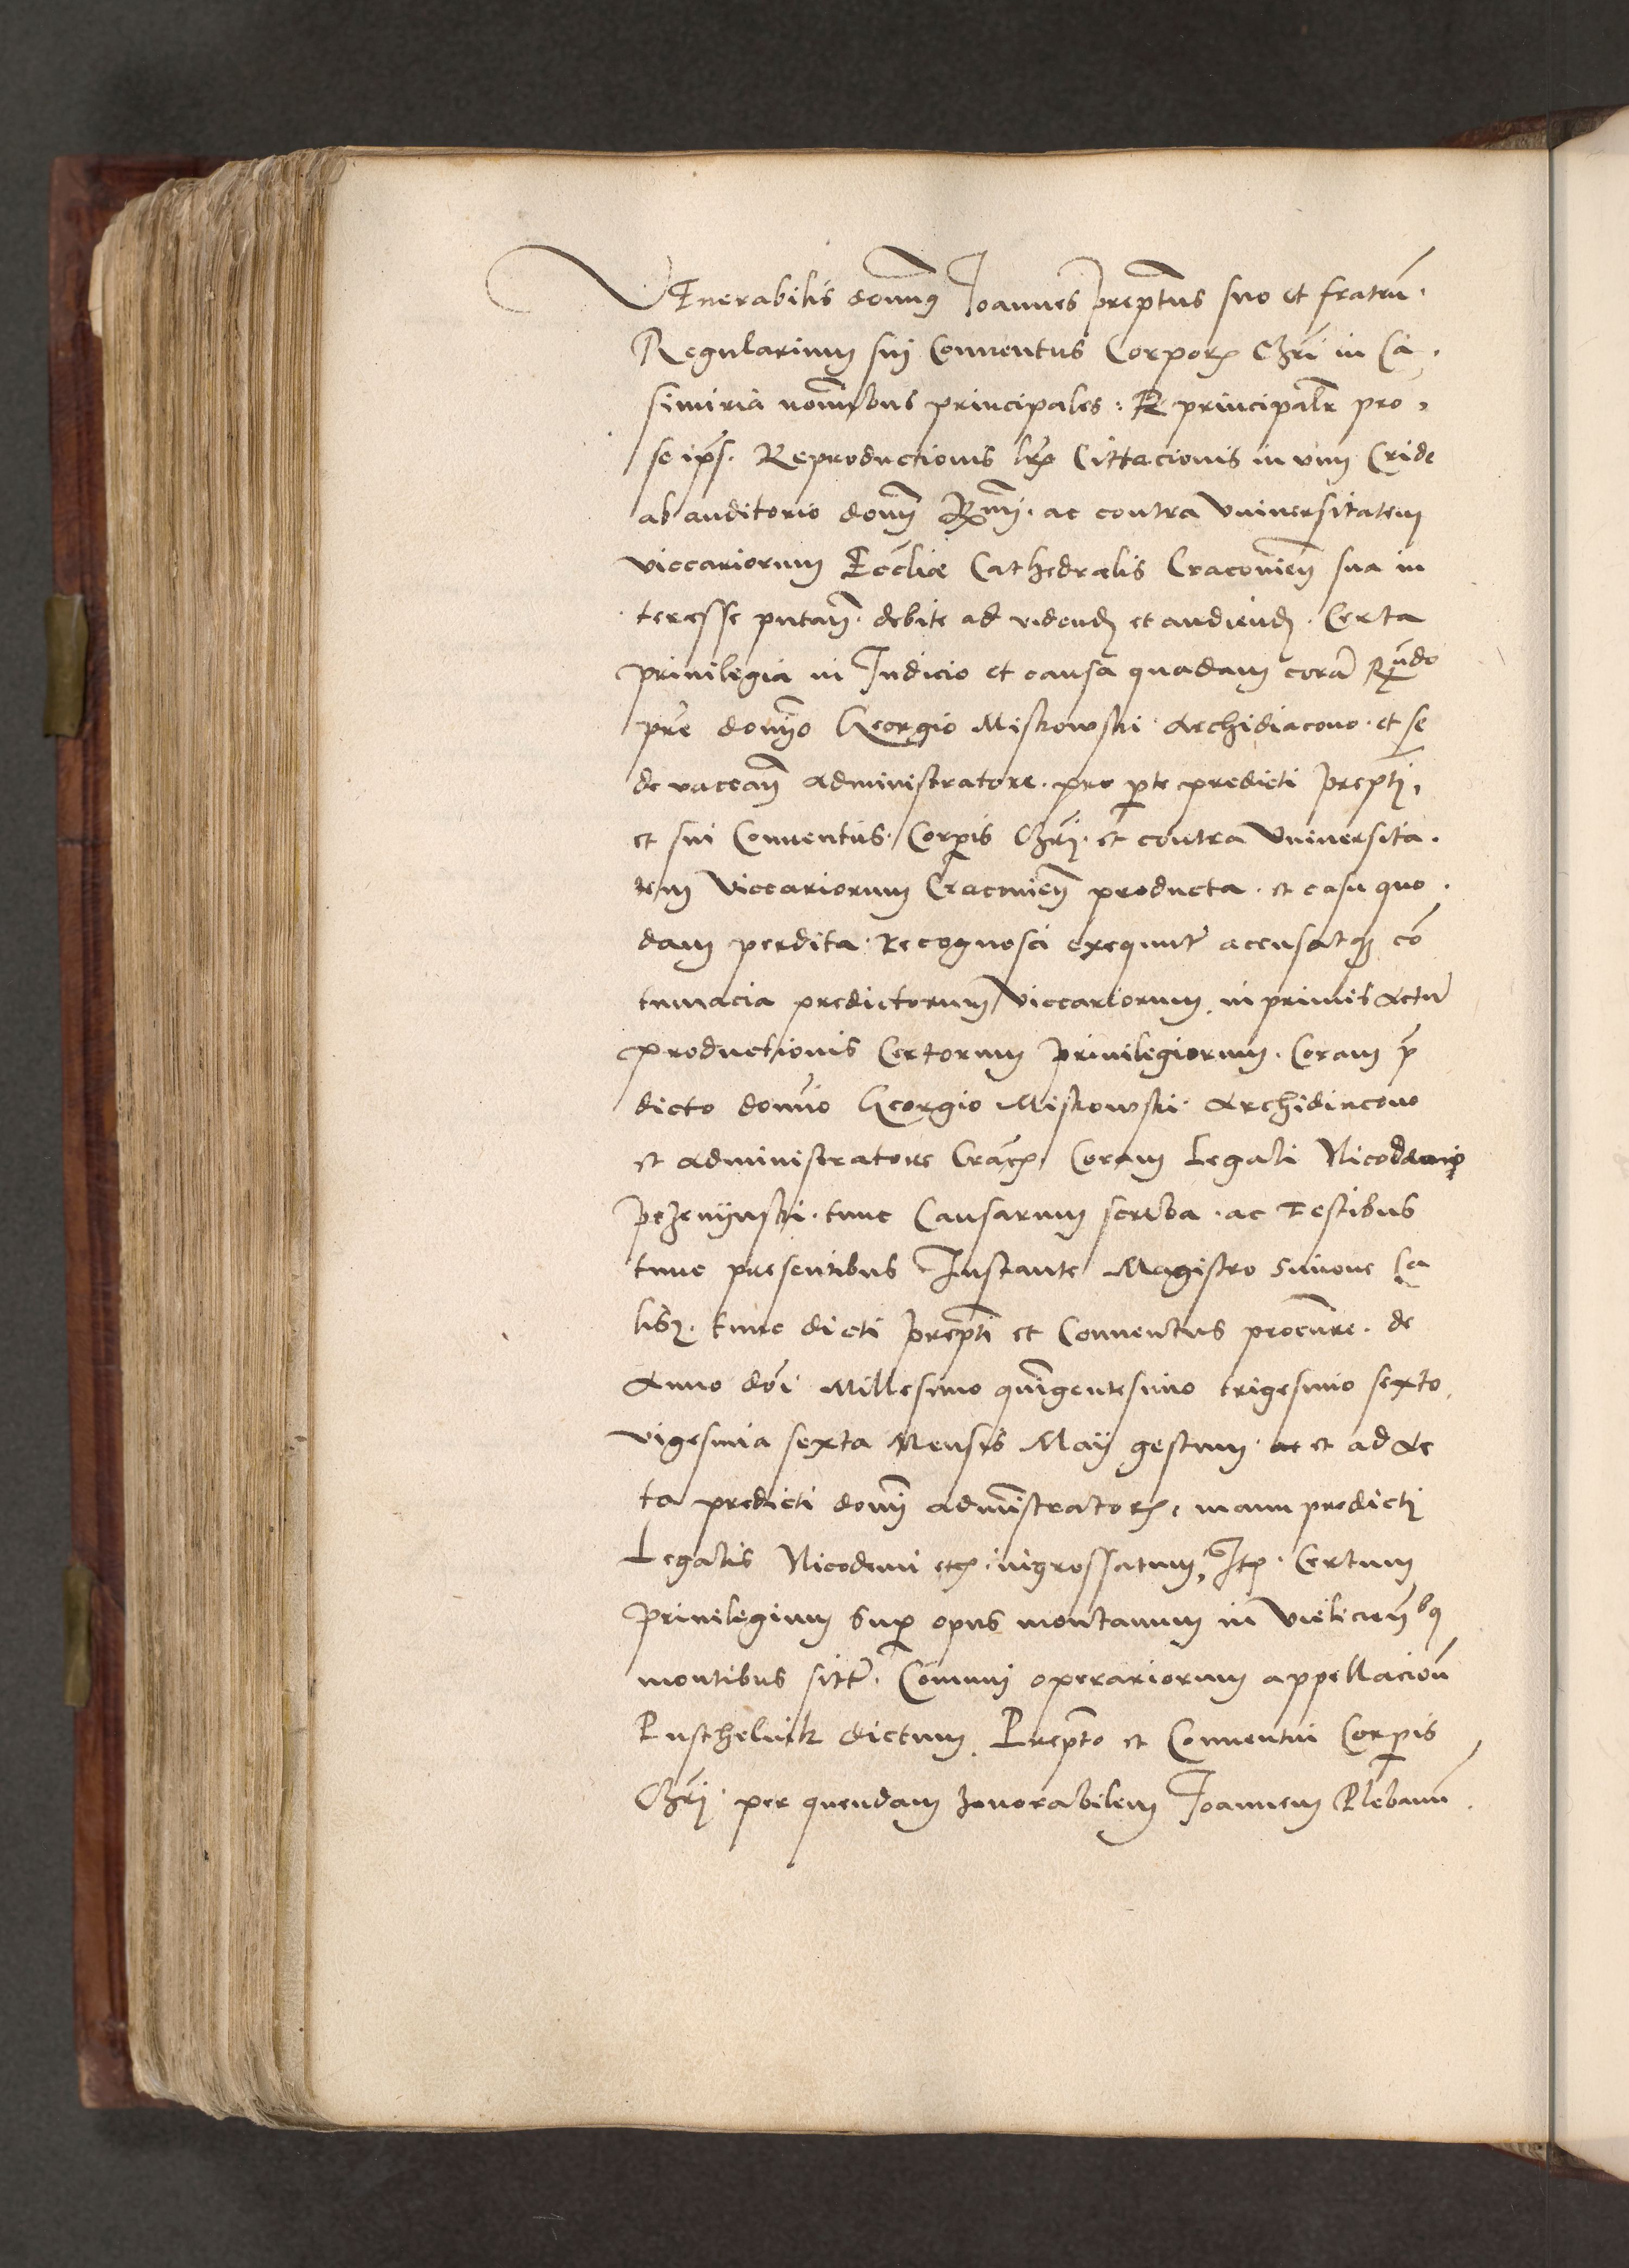 VEnerabilis domnus Joannes prepts suo et fratrū.
Regularium sui Conuentus Corporis Chri in Ca.
simiria nomibus principales. principalr pro
se ipis. Reproductionis lrarum Cittacionis in vim Cride
ab auditorio domni Rmi. ac contra Vniuersitatem
viccariorum Eccliæ Cathedralis Cracouien sua in
teresse putan. debite ad vidend et audiend. Certa
priuilegia in Judicio et causa quadam corā Rndo
pre domino Georgio Miskowski Archidiacono. et se
de vaccan administratore. pro pte predicti prepti,
et sui Conuentus. Corpis Chri. et contra Vniuersita.
tem Viccariorum Cracouien producta. et casu quo.
dam perdita. Recognosci exequunt accusatqz cō
tumacia predictorum Viccariorum, in primis Actū
productionis Certorum priuilegiorum. Coram p
dicto domno Georgio Miskowski. Archidiacono
et Administratore Crac Coram Legali Nicodemo
tunc Causarum scriba. ac Testibus
tunc presentibus Instante Magistro Simone Ca
lisz. tunc dicti prepti et Conuentus procure. de
Anno doi Millesimo quingentesimo trigesimo sexto,
vigesima sexta Mensis Maij gestum. ac et ad Ac
ta predicti domni administratoris, manu predicti
Legalis Nicodemi etc. ingrossatum, Itē. Certum
priuilegium Sup opus montanum in Vieliciensbus
montibus situ. Comuni operariorum appellacion
dictum. Prepto et Conuentui Corpis
Chri. per quendam honorabilem Joannem Plebanū.